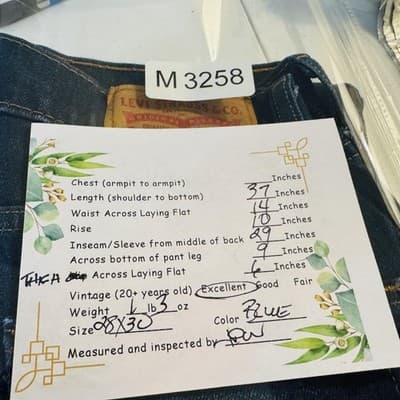 M 3258
LEVI STRAUSS & CO.
ORIGINAL RIVETED
Chest (armpit to armpit) Inches
Length (shoulder to bottom) 37 Inches
Waist Across Laying Flat 14 Inches
Rise 10 Inches
Inseam/Sleeve from middle of back 29 Inches
Across bottom of pant leg 9 Inches
Across Laying Flat 6 Inches
Vintage (20+ years old) Excellent Good Fair
Weight 1 lb 3 oz
Size 28X30 Color BLUE
Measured and inspected by